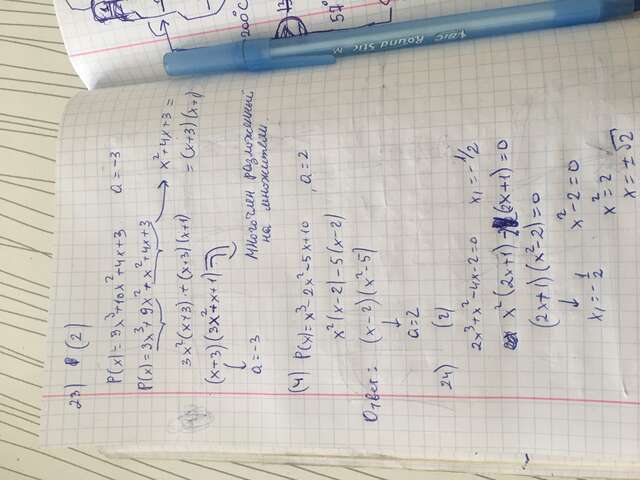 23) (2)
P(x)=3x³+10x²+4x+3 a=-3
P(x)=3x³+9x²+x²+4x+3
x²+4x+3=
3x²(x+3)+(x+3)(x+1)
=(x+3)(x+1)
(x+3)(3x²+x+1)
a=-3
Многочлен разложенный
на множители.
(4) P(x)=x³-2x²-5x+10 , a=2
x²(x-2)-5(x-2)
Ответ: (x-2)(x²-5)
a=2
24) (2)
2x³+x²-4x-2=0 x₁=-1/2
x²(2x+1)-2(2x+1)=0
(2x+1)(x²-2)=0
x₁=-1/2
x²-2=0
x²=2
x=±√2
200°C
57°
Round Stic M